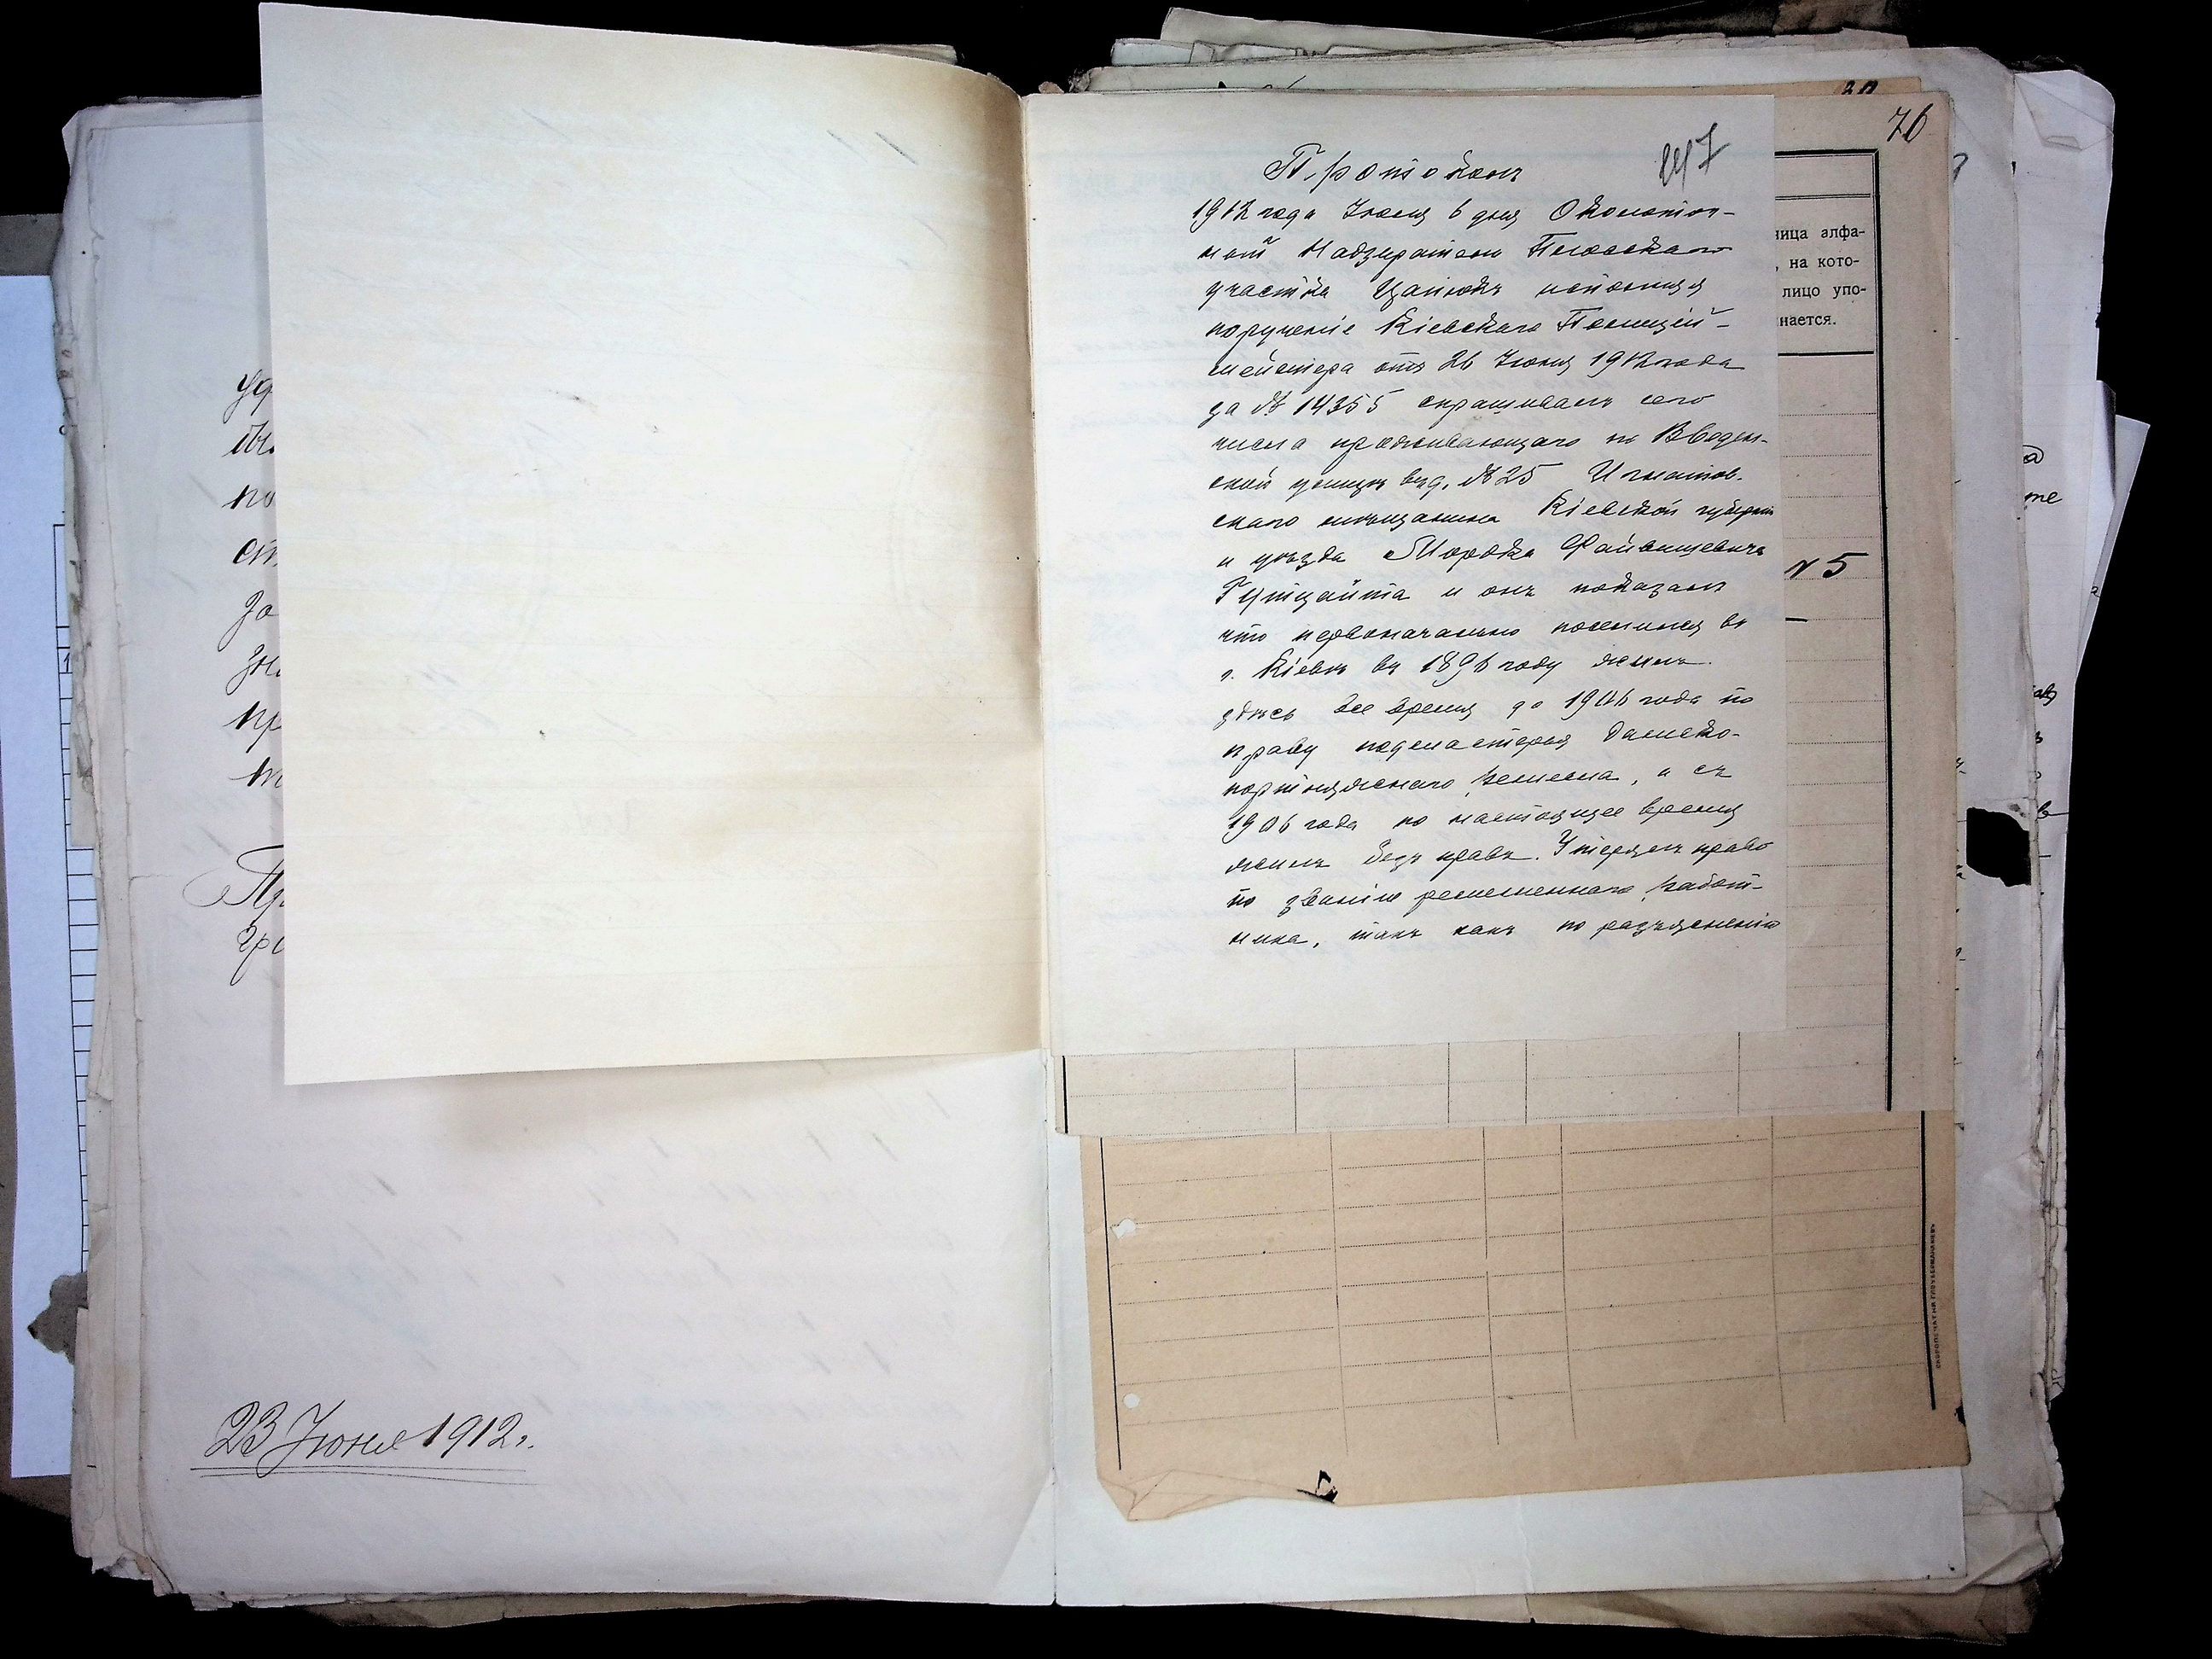 уд
но
ст
за
зн
пр
Пр
гр
23 Іюня 1912 г.
76
Протоколъ
1912 года Іюля 6 дня Околоточ-
ный Надзиратель Плосскаго
участка исполняя
порученіе Кіевскаго Полицей-
мейстера отъ 26 Іюня 1912 года
за № 14355 спрашивалъ сего
числа проживающаго по Введен-
ской улицѣ въ д. № 25 Игнатов-
скаго мѣщанина Кіевской губерніи
и уѣзда Мордка Файвишевича
Гутцайта и онъ показалъ
что первоначально поселился въ
г. Кіевѣ въ 1896 году жилъ
здѣсь все время до 1906 года по
праву подмастерья дамско-
портняжскаго ремесла, а съ
1906 года по настоящее время
жилъ безъ правъ. Утерялъ право
по званію ремесленнаго работ-
ника, такъ какъ по разъясненію
ница алфа-
, на кото-
лицо упо-
нается.
№ 5
—